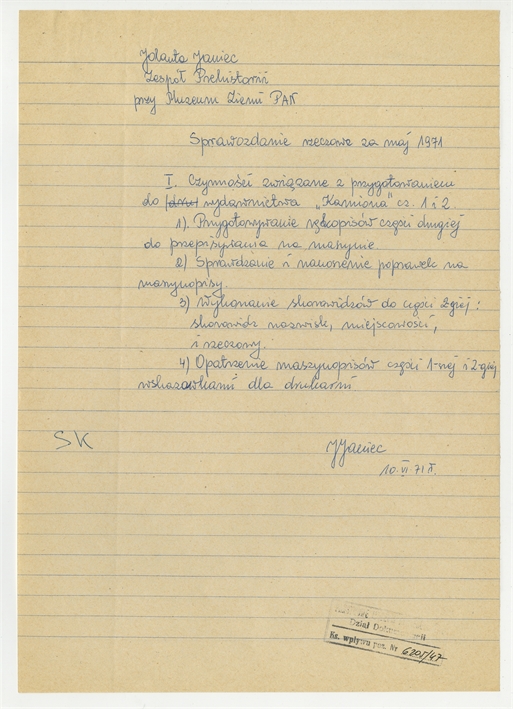 Jolanta Janiec
Zespół Prehistorii
przy Muzeum Ziemi PAN
Sprawozdanie rzeczowe za maj 1971
I. Czynności związane z przygotowaniem
do wydawnictwa „Kamiona" cz. 1 i 2.
1). Przygotowywanie rękopisów części drugiej
do przepisywania na maszynie
2) Sprawdzanie i nanoszenie poprawek na
maszynopisy.
3) Wykonanie skorowidzów do części 2-giej:
skorowidz nazwisk, miejscowości,
i rzeczowy.
4) Opatrzenie maszynopisów części 1-ej i 2-giej
wskazówkami dla drukarni
SK
JJaniec
10.VI 71 r.
Dział
Ks. wpływu poz. Nr 6205/47